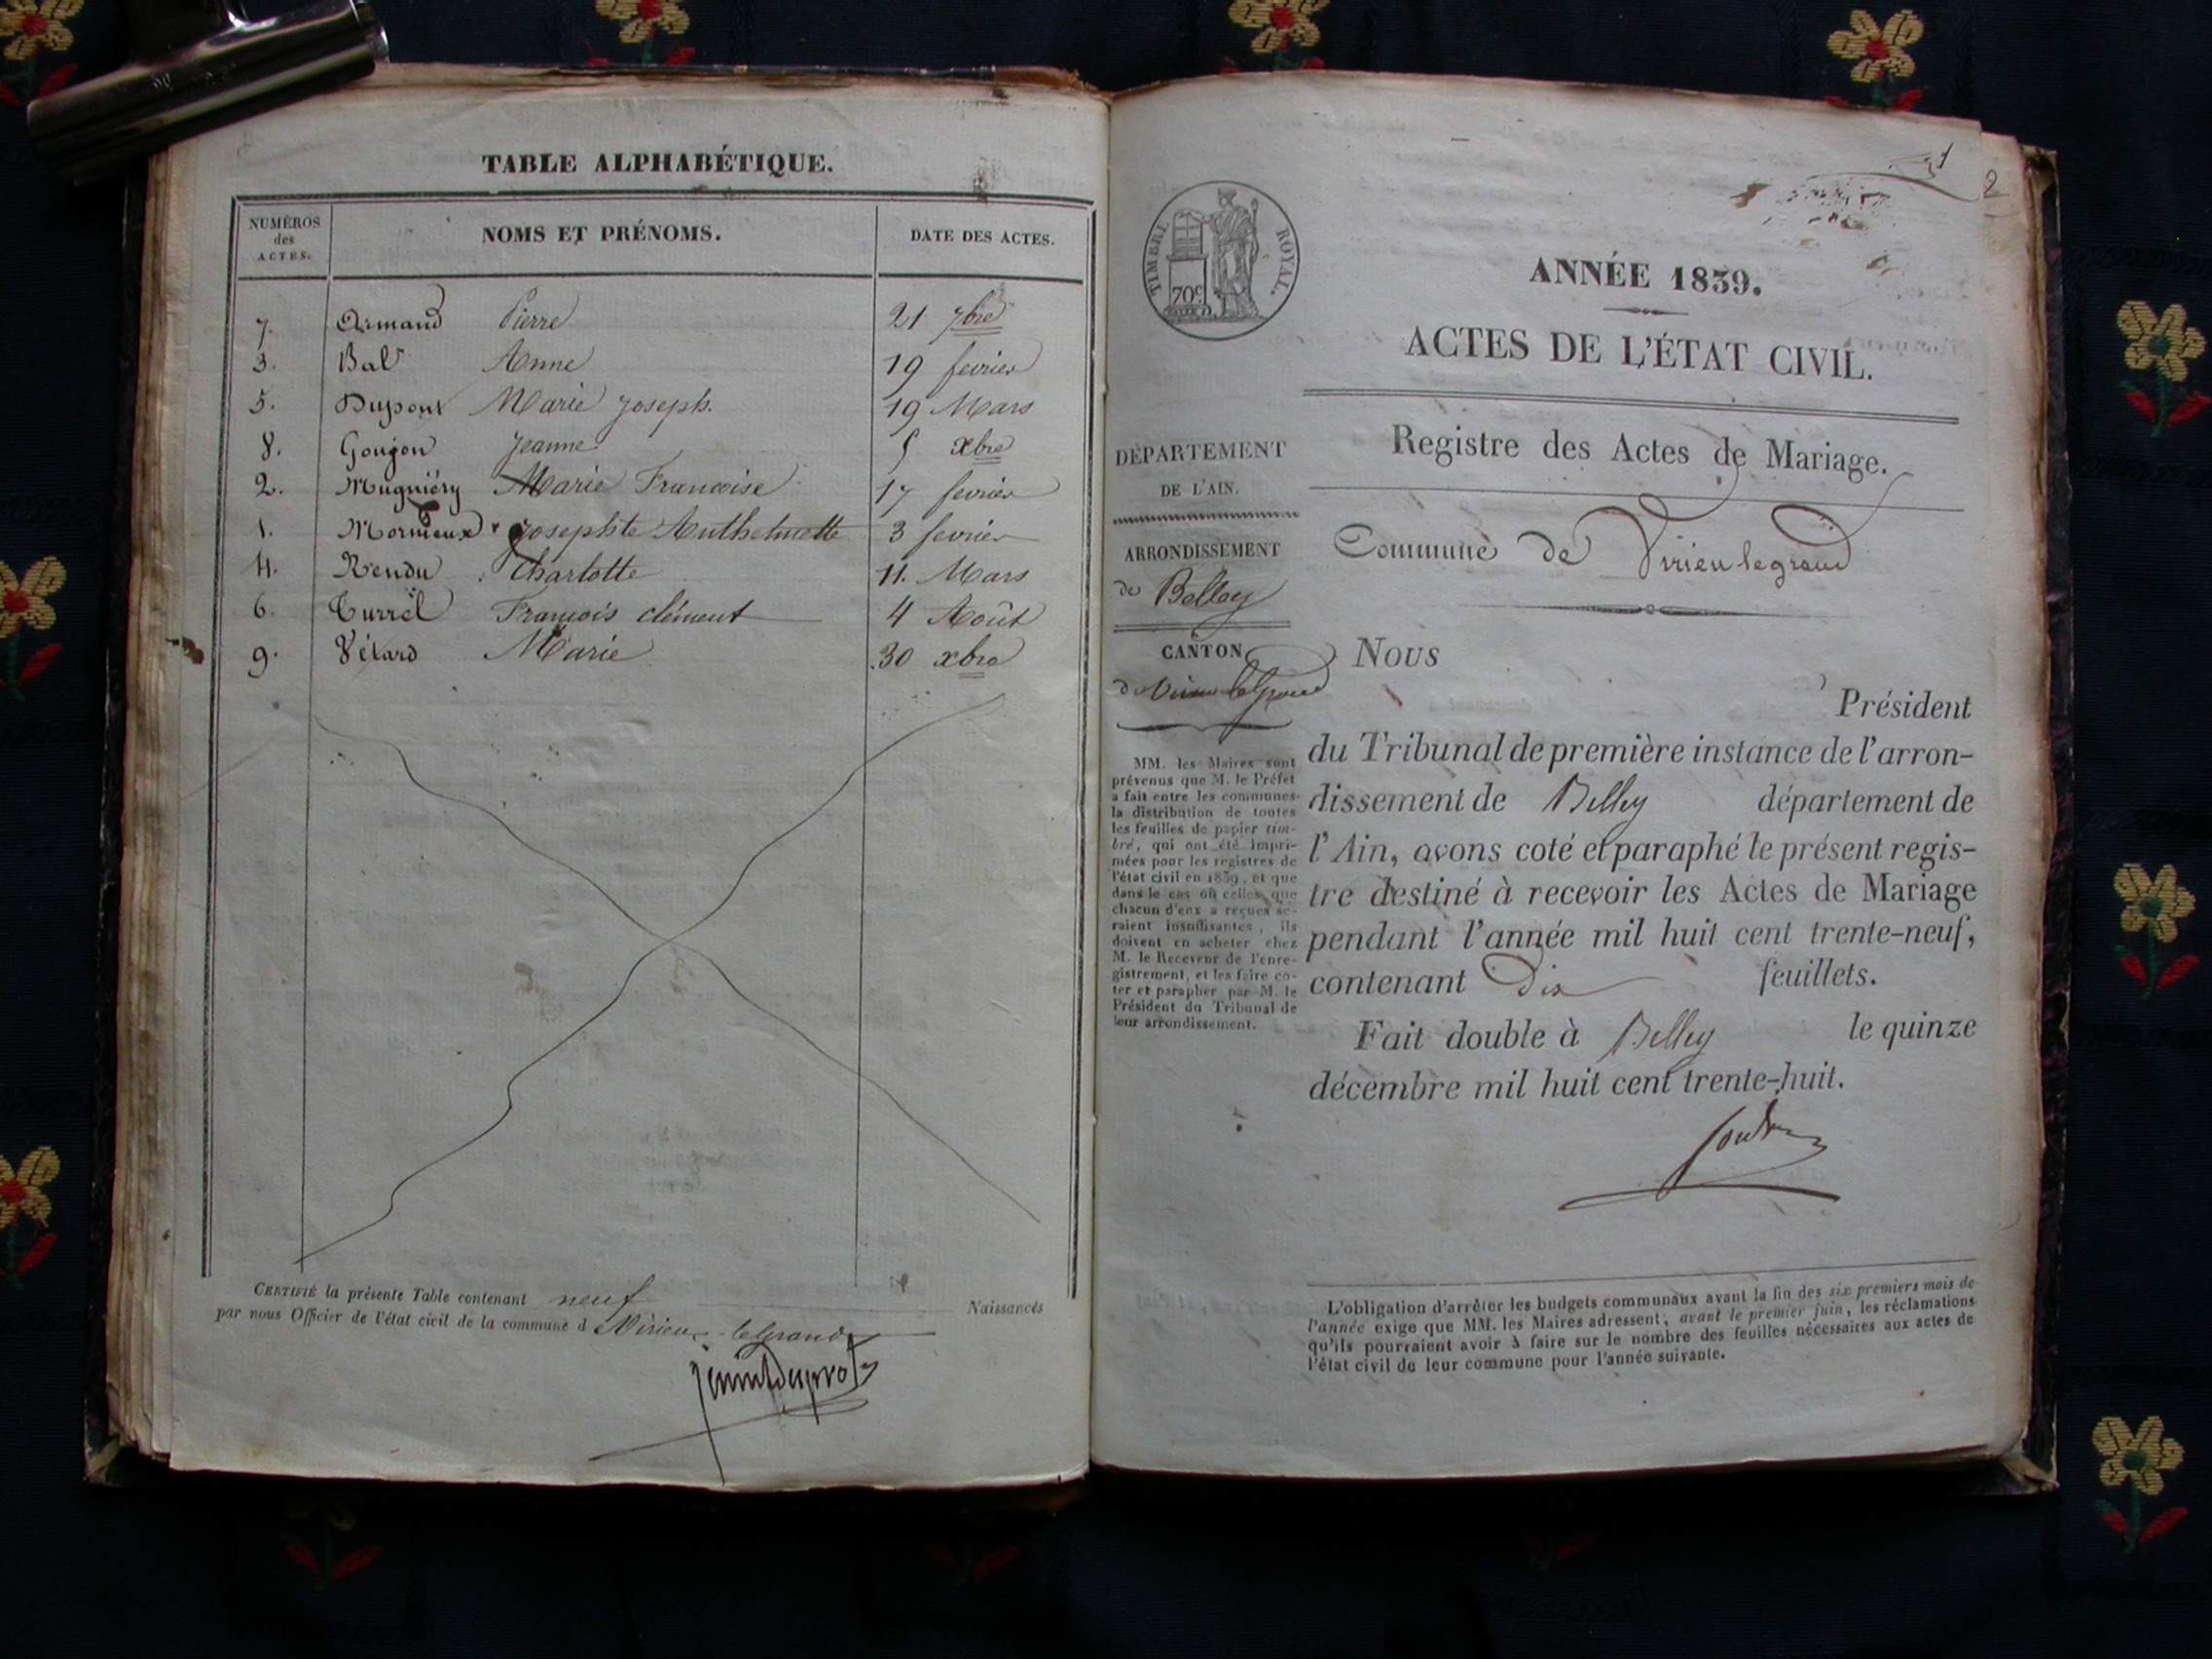 TABLE ALPHABÉTIQUE.
NUMÉROS
des
ACTES.
NOMS ET PRÉNOMS.
DATE DES ACTES.
7. Armand Pierre 21 7bre
3. Bal Anne 19 fevrier
5. Dupont Marie Joseph. 19 Mars
8. Goujon Jeanne 5 xbre
2. Mugniéry Marie Francoise 17 fevrier
1. Josephte Anthelmette 3 fevrier
4. Rendu Charlotte 11. Mars
6. Turrel François clément 4 Août
9. Vétard Marie 30 xbre
CERTIFIÉ la présente Table contenant neuf Naissances
par nous Officier de l'état civil de la commune d Virieu-legrand
2
TIMBRE ROYAL.
70c
ANNÉE 1839.
ACTES DE L'ÉTAT CIVIL.
Registre des Actes de Mariage.
Commune de Virieu legrand
DÉPARTEMENT
DE L'AIN.
ARRONDISSEMENT
de Belley
CANTON
d Virieu le Grand
MM. les Maires sont
prévenus que M. le Préfet
a fait entre les communes
la distribution de toutes
les feuilles de papier tim-
bré, qui ont été impri-
mées pour les registres de
l'état civil en 1839, et que
dans le cas où celles que
chacun d'eux a reçues se-
raient insuffisantes, ils
doivent en acheter chez
M. le Receveur de l'enre-
gistrement, et les faire co-
ter et parapher par M. le
Président du Tribunal de
leur arrondissement.
Nous
Président
du Tribunal de première instance de l'arron-
dissement de Belley département de
l'Ain, avons coté et paraphé le présent regis-
tre destiné à recevoir les Actes de Mariage
pendant l'année mil huit cent trente-neuf,
contenant Dix feuillets.
Fait double à Belley le quinze
décembre mil huit cent trente-huit.
L'obligation d'arrêter les budgets communaux avant la fin des six premiers mois de
l'année exige que MM. les Maires adressent, avant le premier juin, les réclamations
qu'ils pourraient avoir à faire sur le nombre des feuilles nécessaires aux actes de
l'état civil de leur commune pour l'année suivante.